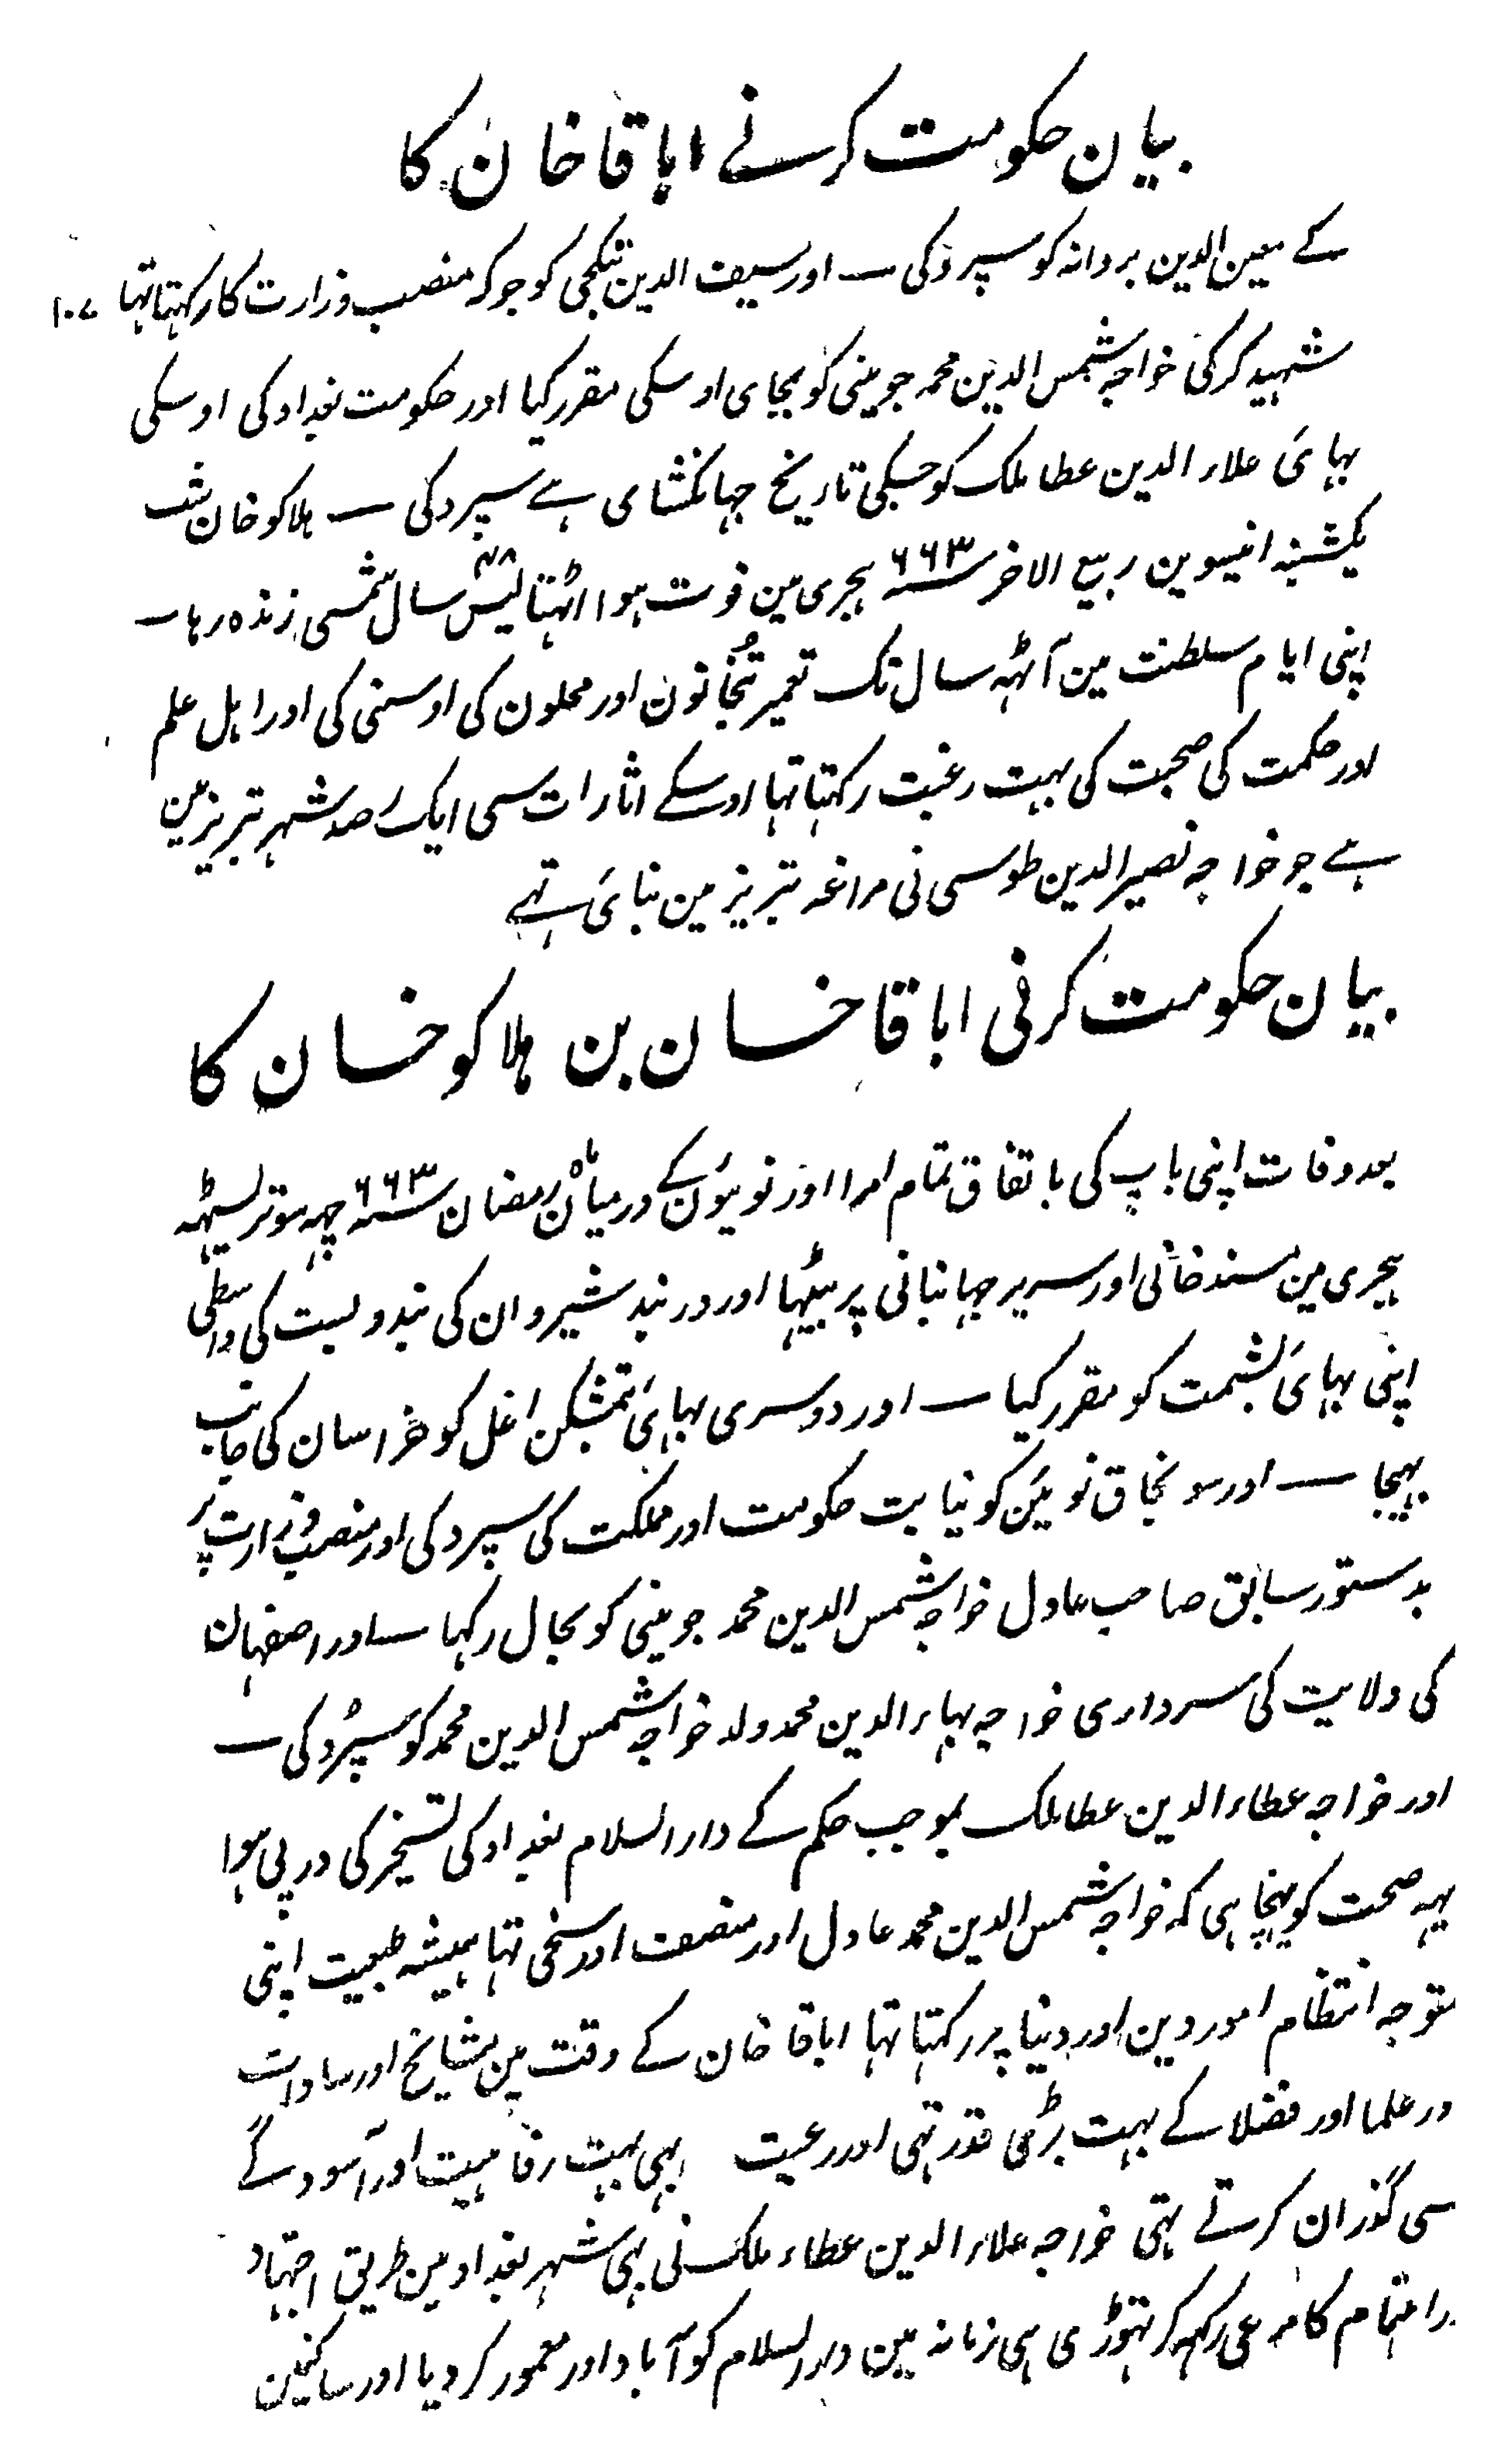 بیان حکومت کرنے اباقا خان کا
کے معین الدین پروانہ کو سپرد کی ــ اور سیف الدین تیکچی کو جو کہ منصب وزارت کا رکہتا تہا ۱۰۷
شہید کرکی خواجہ شمس الدین محمد جوینی کو بجای اوسکی مقرر کیا اور حکومت بغداد کی اوسکی
بہائی علاء الدین عطا ملک کو جسکی تاریخ جہانکشای ہے سپرد کی ــ ہلاکو خان شب
یکشنبہ انیسوین ربیع الاخر سنہ ۶۶۳ ہجری مین فوت ہوا اٹہتالیس ۴۸ سال شمسی زندہ رہا ــ
اپنی ایام سلطنت مین آٹہہ سال تک تعمیر بتخانون اور محلون کی اوسنی کی اور اہل علم
اور حکمت کی صحبت کی بہت رغبت رکہتا تہا اوسکے اثارات سی ایک رصد شہر تبریز مین
ہے جو خواجہ نصیر الدین طوسی نی مراغہ تبریز مین بنائی تہے
بیان حکومت کرنی اباقا خان بن ہلاکو خان کا
بعد وفات اپنی باپ کی باتفاق تمام امرا اور نوئیون کے درمیان ماہ رمضان سنہ ۶۶۳ چہہ سو ترسٹہہ
ہجری مین مسند خانی اور سریر جہانبانی پر بیٹہا اور دربند شیروان کی بندوبست کی واسطی
اپنی بہائی یشمت کو مقرر کیا ــ اور دوسری بہائی تمشکن اغل کو خراسان کی جانب
بہیجا ــ اور سونجاق نوئین کو نیابت حکومت اور مملکت کی سپرد کی اور منصب وزارت پر
بدستور سابق صاحب عادل خواجہ شمس الدین محمد جوینی کو بحال رکہا ــ اور اصفہان
کی ولایت کی سرداری خواجہ بہاء الدین محمد ولد خواجہ شمس الدین محمد کو سپرد کی ــ
اور خواجہ عطاء الدین عطا ملک بموجب حکم کے دار السلام بغداد کی تسخیر کی درپی ہوا
یہہ صحت کو پہنچا ہی کہ خواجہ شمس الدین محمد عادل اور منصف اور سخی تہا ہمیشہ طبیعت اپنی
متوجہ انتظام امور دین اور دنیا پر رکہتا تہا اباقا خان کے وقت مین مشایخ اور سادات
ور علما اور فضلا کے بہت بڑی قدر تہی اور رعیت بہی بہت رفاہیت اور آسودگے
سی گذران کرتے تہی خواجہ علاء الدین عطاء ملک نی بہی شہر بغداد مین طریق اجتہاد
ر اہتمام کا مرعی رکہہ کر تہوڑی ہی زمانہ مین دار السلام کو آباد اور معمور کر دیا اور ساکنین